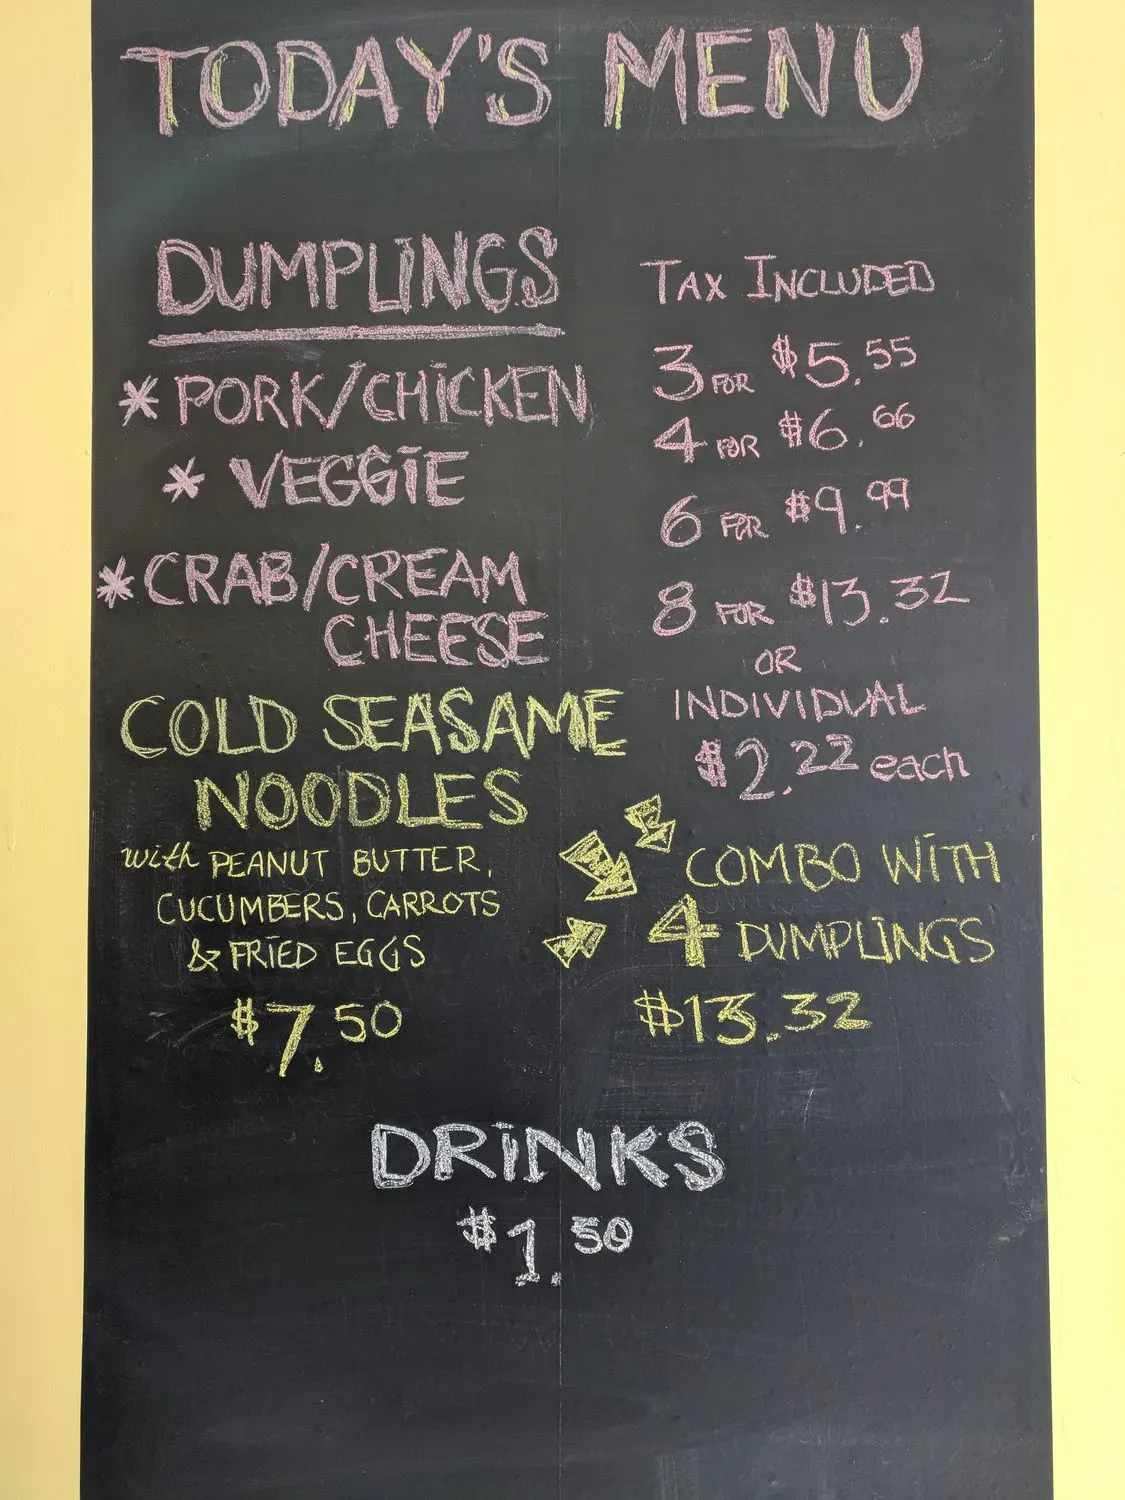 TODAY'S MENU
DUMPLINGS
* PORK/CHICKEN
* VEGGIE
* CRAB/CREAM
CHEESE
TAX INCLUDED
3 FOR $5.55
4 FOR $6.66
6 FOR $9.99
8 FOR $13.32
OR
INDIVIDUAL
$2.22 each
COLD SEASAME
NOODLES
with PEANUT BUTTER,
CUCUMBERS, CARROTS
& FRIED EGGS
$7.50
COMBO WITH
4 DUMPLINGS
$13.32
DRINKS
$1.50